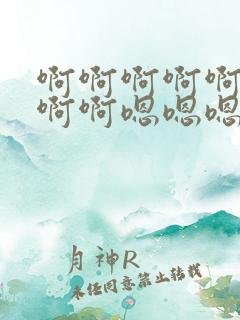 啊啊啊啊啊
啊啊嗯嗯嗯
月神R
未经同意禁止转载